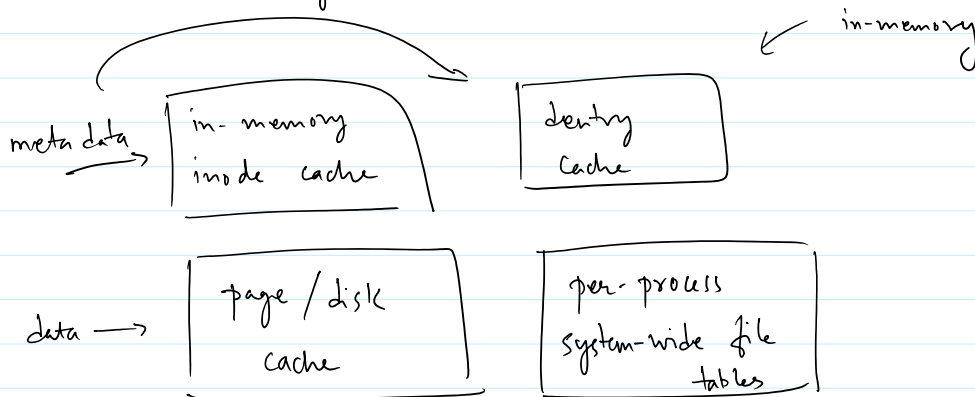 in-memory
meta data
in-memory
inode cache
dentry
cache
data
page / disk
cache
per-process
system-wide file
tables